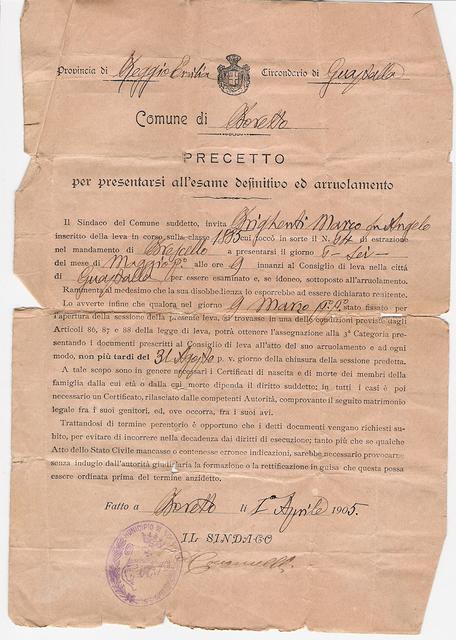 Provincia di Reggio Emilia Circondario di Guastalla
Comune di Boretto
PRECETTO
per presentarsi all'esame definitivo ed arruolamento
Il Sindaco del Comune suddetto, invita Brighenti Marco di Angelo
inscritto della leva in corso sulla classe 1885 cui toccò in sorte il N. 94 di estrazione
nel mandamento di Brescello a presentarsi il giorno 6 - Sei -
del mese di Maggio alle ore 9 innanzi al Consiglio di leva nella città
di Guastalla per essere esaminato e, se idoneo, sottoposto all'arruolamento.
Rammenta al medesimo che la sua disobbedienza lo esporebbe ad essere dichiarato renitente.
Lo avverte infine che qualora nel giorno 9 Marzo p.p. stato fissato per
l'apertura della sessione della presente leva, si trovasse in una delle condizioni previste dagli
Articoli 86, 87 e 88 della legge di leva, potrà ottenere l'assegnazione alla 3ª Categoria pre-
sentando i documenti prescritti al Consiglio di leva all'atto del suo arruolamento e ad ogni
modo, non più tardi del 31 Agosto p. v. giorno della chiusura della sessione predetta.
A tale scopo sono in genere necessari i Certificati di nascita e di morte dei membri della
famiglia dalla cui età o dalla cui morte dipenda il diritto suddetto; in tutti i casi è poi
necessario un Certificato, rilasciato dalle competenti Autorità, comprovante il seguito matrimonio
legale fra i suoi genitori, ed, ove occorra, fra i suoi avi.
Trattandosi di termine perentorio è opportuno che i detti documenti vengano richiesti su-
bito, per evitare di incorrere nella decadenza dai diritti di esecuzione; tanto più che se qualche
Atto dello Stato Civile mancasse o contenesse erronee indicazioni, sarebbe necessario provocarne
senza indugio dall'autorità giudiziaria la formazione o la rettificazione in guisa che questa possa
essere ordinata prima del termine anzidetto.
Fatto a Boretto li 1° Aprile 1905.
IL SINDACO
MUNICIPIO DI